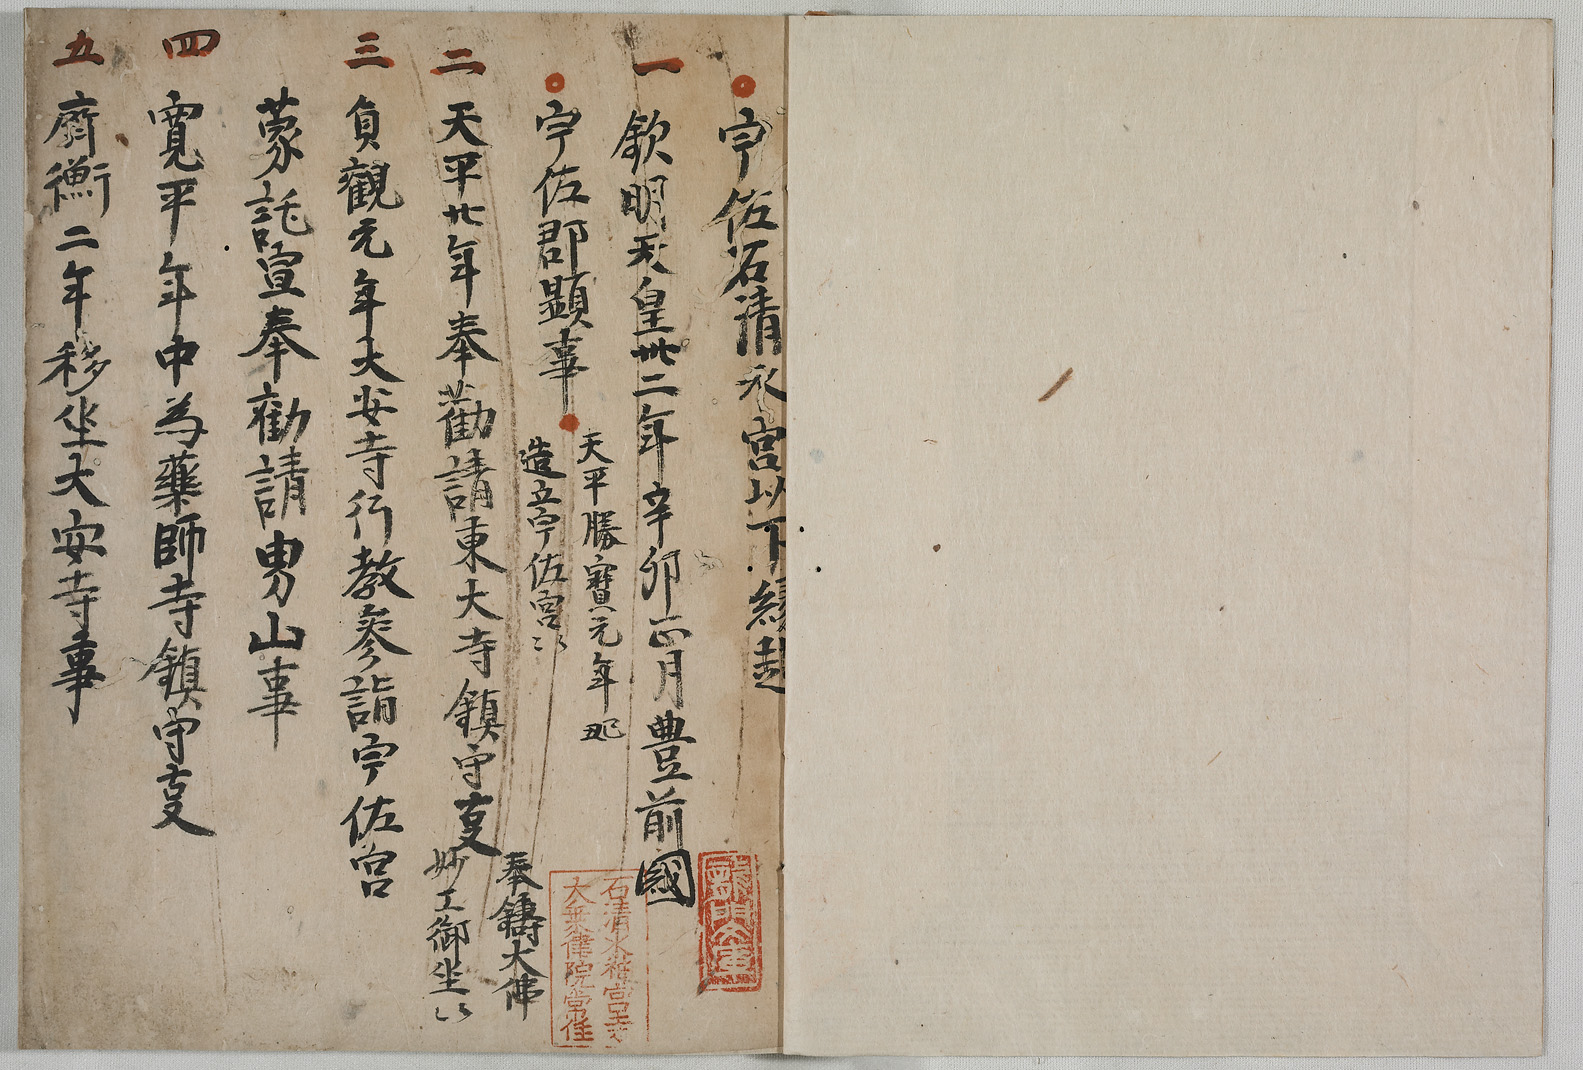 宇佐石清水宮以下縁起
一 欽明天皇卅二年辛卯正月豊前國
宇佐郡顕事
天平勝寶元年
造立宇佐宮
二 天平廿年奉勸請東大寺鎮守事
奉鑄大佛
妙工御坐
三 貞觀元年大安寺行教參詣宇佐宮
蒙託宣奉勸請男山事
四 寛平年中為藥師寺鎮守事
五 齊衡二年移坐大安寺事
石清水
大乘律院常住